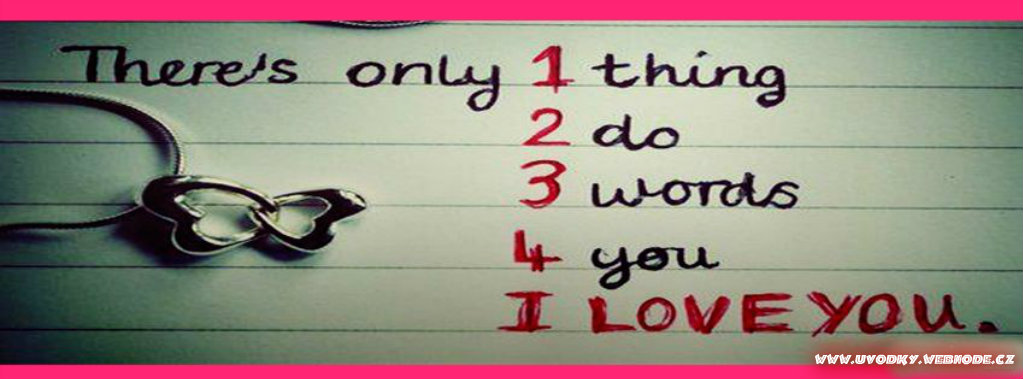 There's only 1 thing
2 do
3 words
4 you
I LOVE YOU.
WWW.UVODKY.WEBNODE.CZ